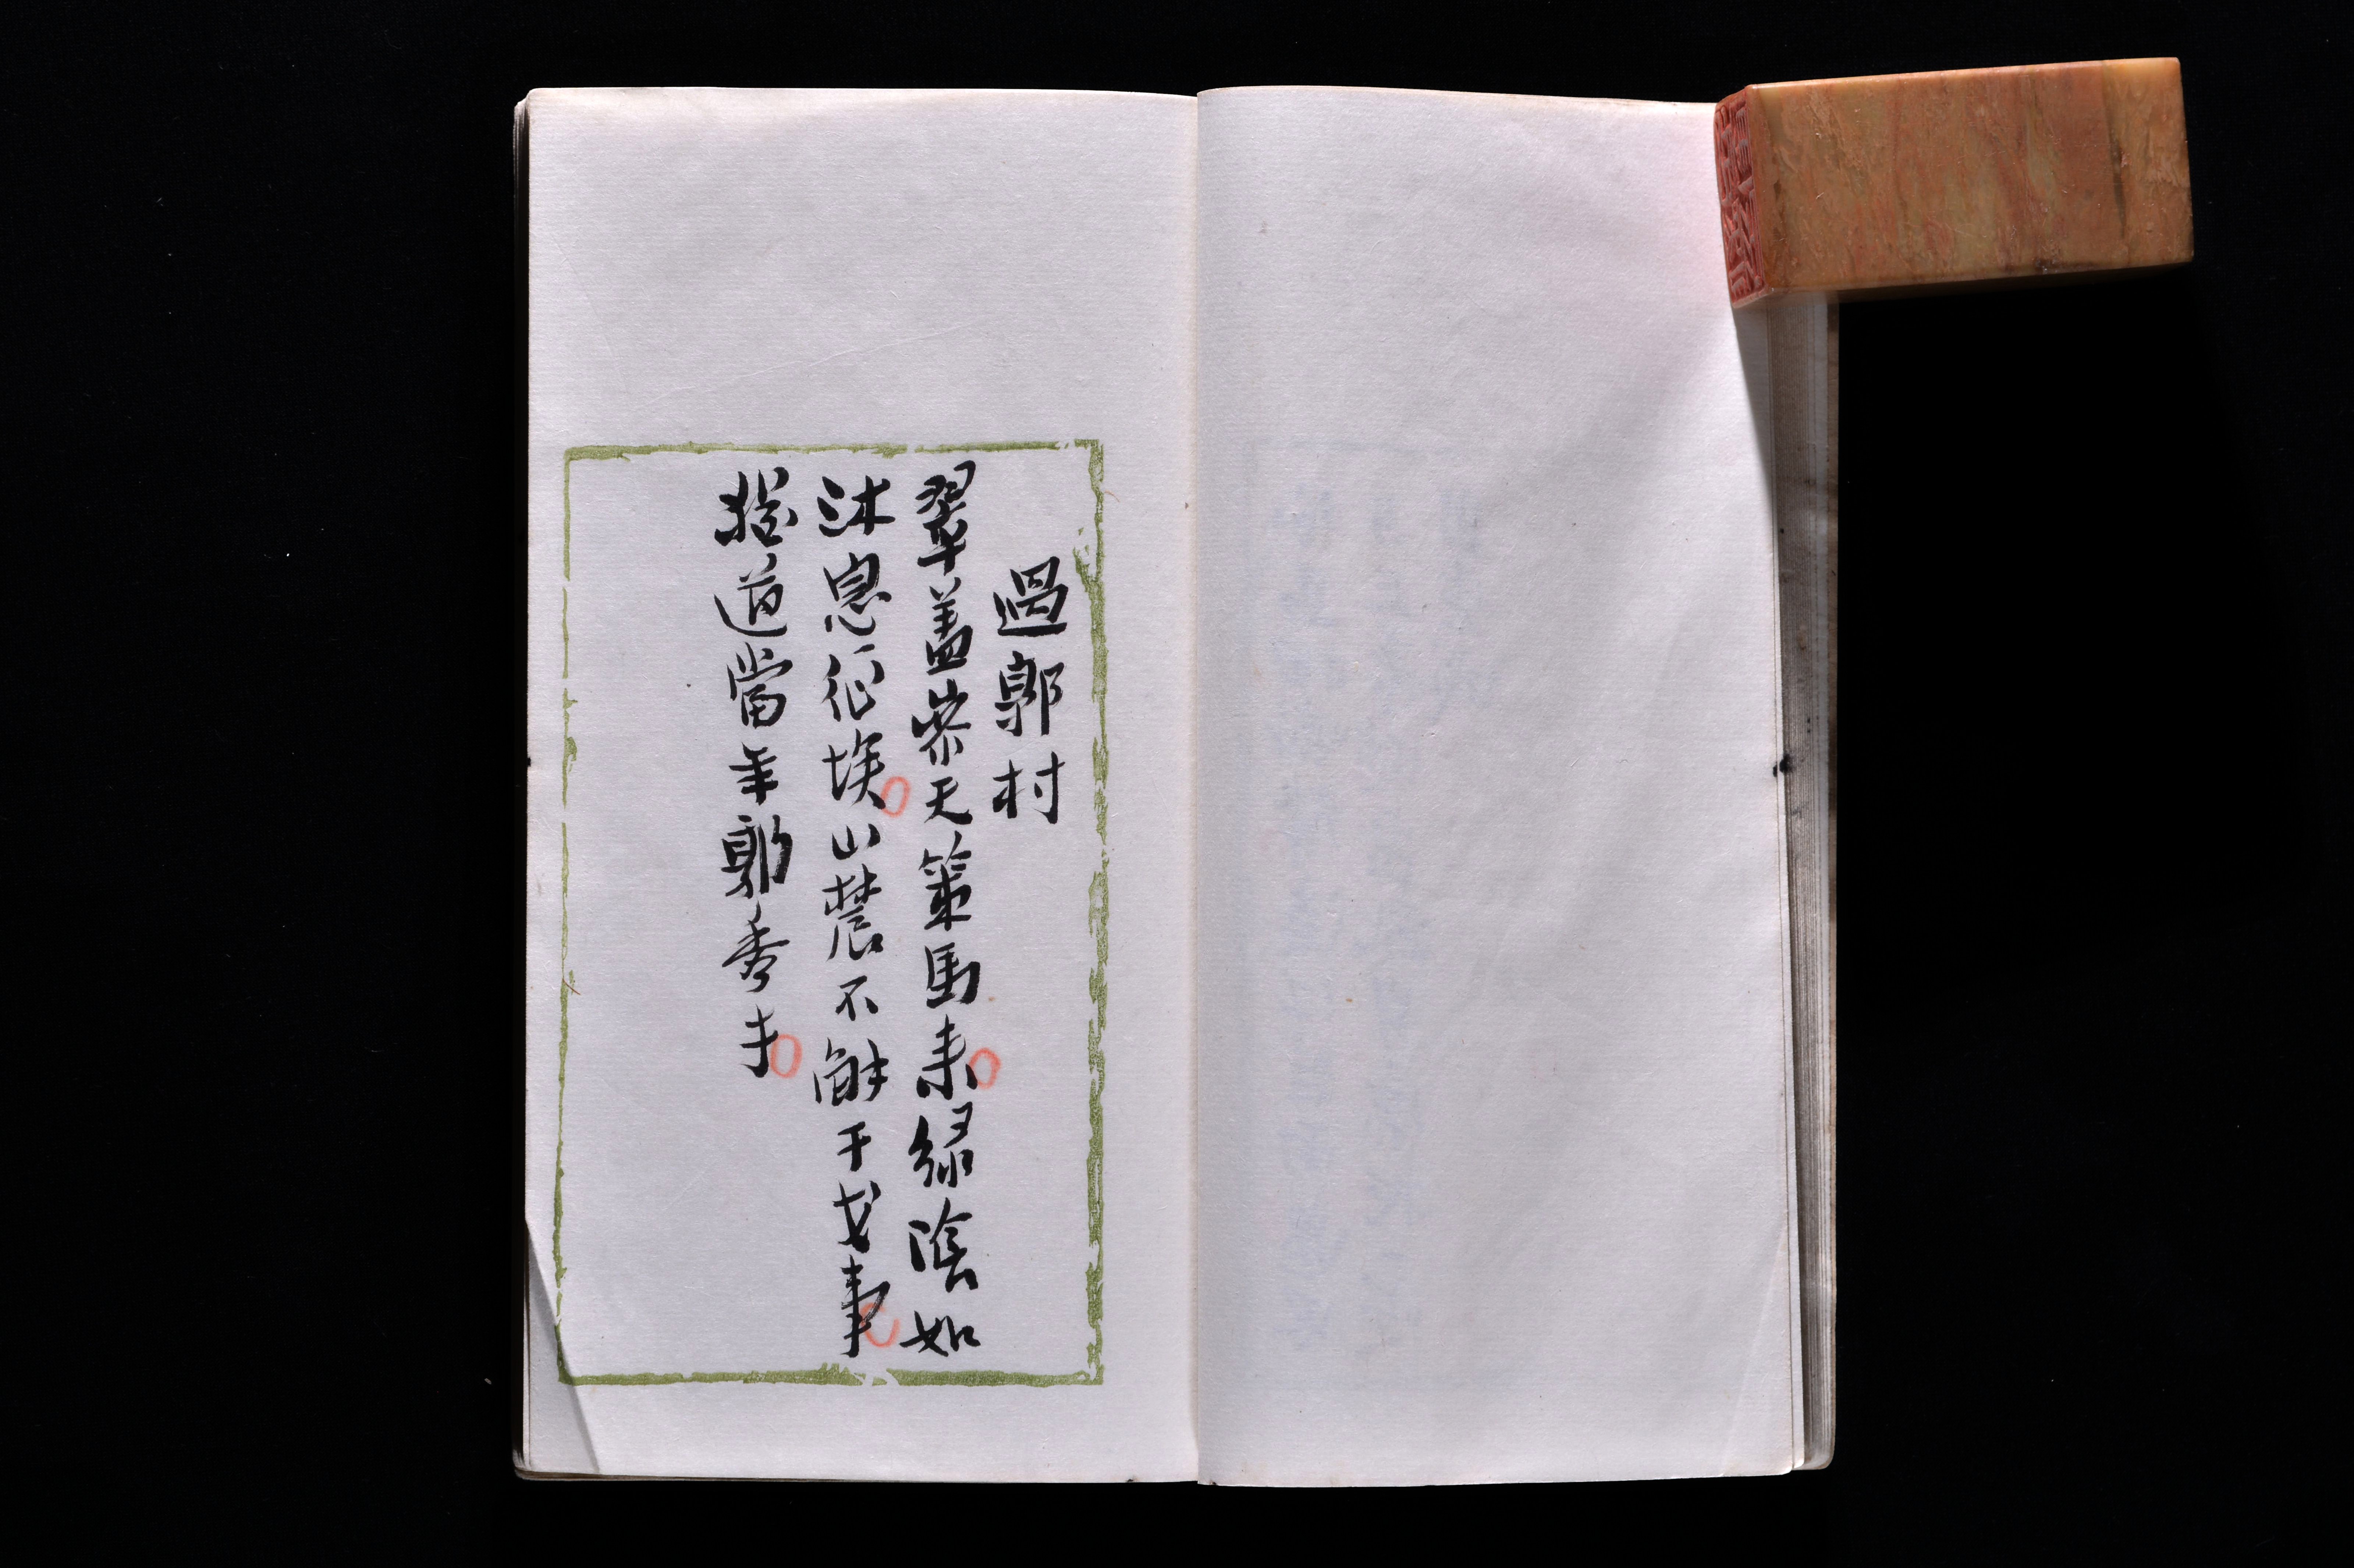 過郭村
翠蓋參天策馬來綠陰如
沐息征埃山農不解干戈事
猶道當年郭秀才